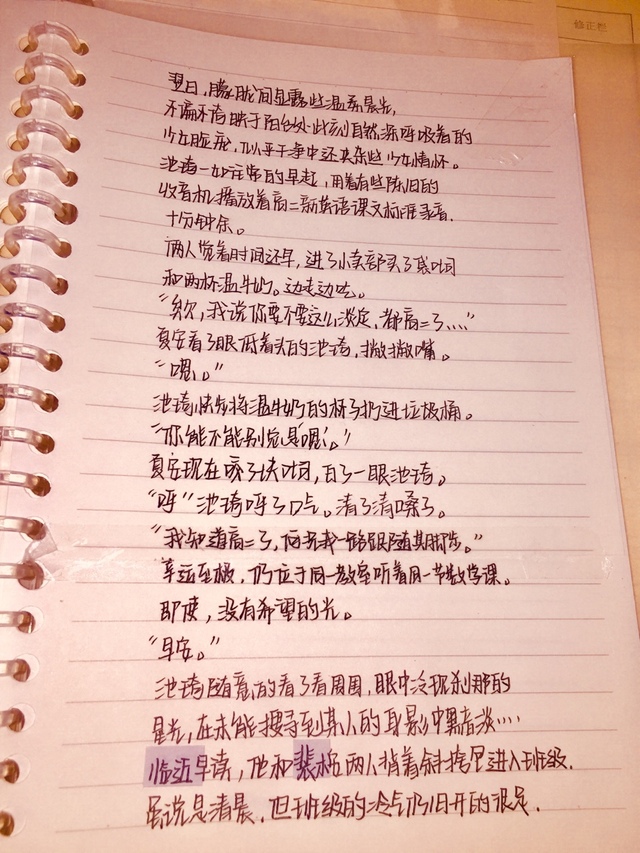 修正带
翌日，朦胧间显露些温柔晨光，
不偏不倚映于阳台处此刻自然深呼吸着的
少女脸庞，似乎干净中还夹杂些少女情怀。
池琦一如往常的早起，用着有些陈旧的
收音机播放着高二新英语课文标准录音。
十分钟余。
俩人觉着时间还早，进了小卖部买了袋吐司
和两杯温牛奶。边走边吃。
“欸，我说你要不要这么淡定，都高二了....”
夏安看了眼低着头的池琦，撇撇嘴。
“嗯。”
池琦快步将温牛奶的杯子扔进垃圾桶。
“你能不能别总是‘嗯’。”
夏安现在啃了块吐司，白了一眼池琦。
“呼”池琦呼了口气。清了清嗓子。
“我知道高二了，何老我一路跟随其脚步。”
幸运至极，仍位于同一教室听着同一节数学课。
即使，没有希望的光。
“早安。”
池琦随意的看了看周围，眼中泛现刹那的
星光，在未能搜寻到某人的身影中黯淡....
临近早读，他和裴 两人背着斜挎包进入班级.
虽说是清晨，但班级的冷气仍旧开的很足.